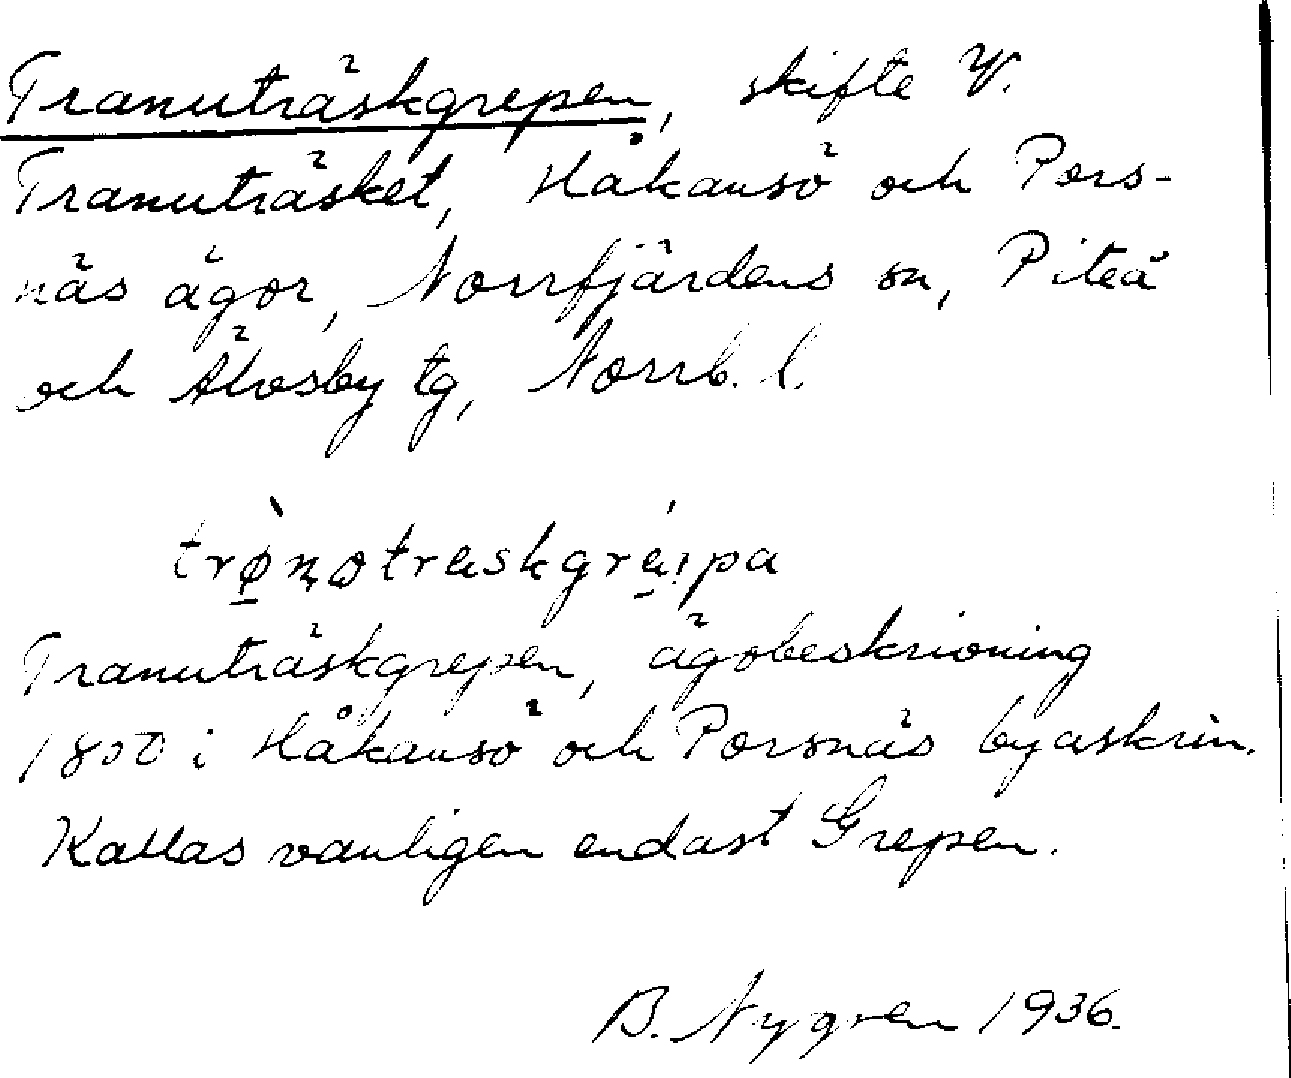 Tranuträskgrepen, skifte V.
Tranuträsket, Håkansö och Pors-
näs ägor, Norrfjärdens sn, Piteå
och Älvsby tg, Norrb. l.
trø̀nɷtraskgrá̱ıpa
Tranuträskgrepen, ägobeskrivning
1800 i Håkansö och Porsnäs byaskrin.
Kallas vanligen endast Grepen.
B. Nygren 1936.